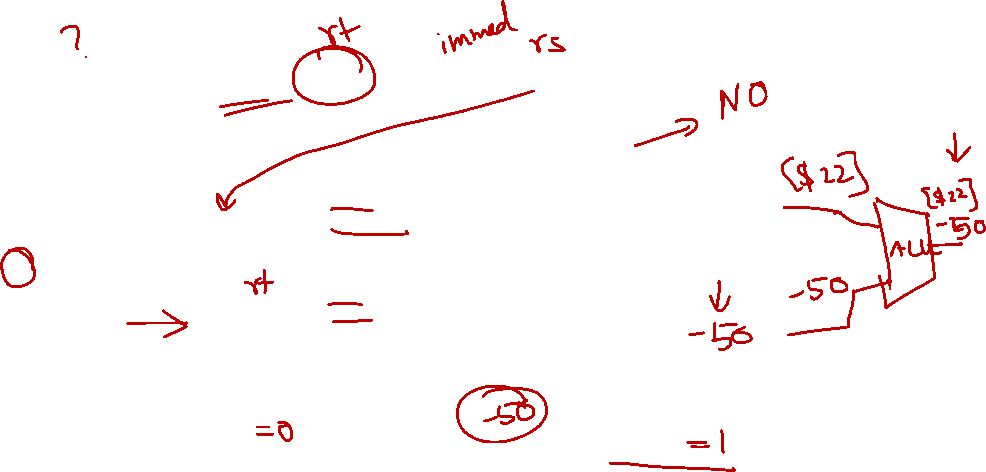 ?
rt
immed
rs
NO
[$22]
[$22]
-50
ALU
-50
rt
-50
-50
=0
=1